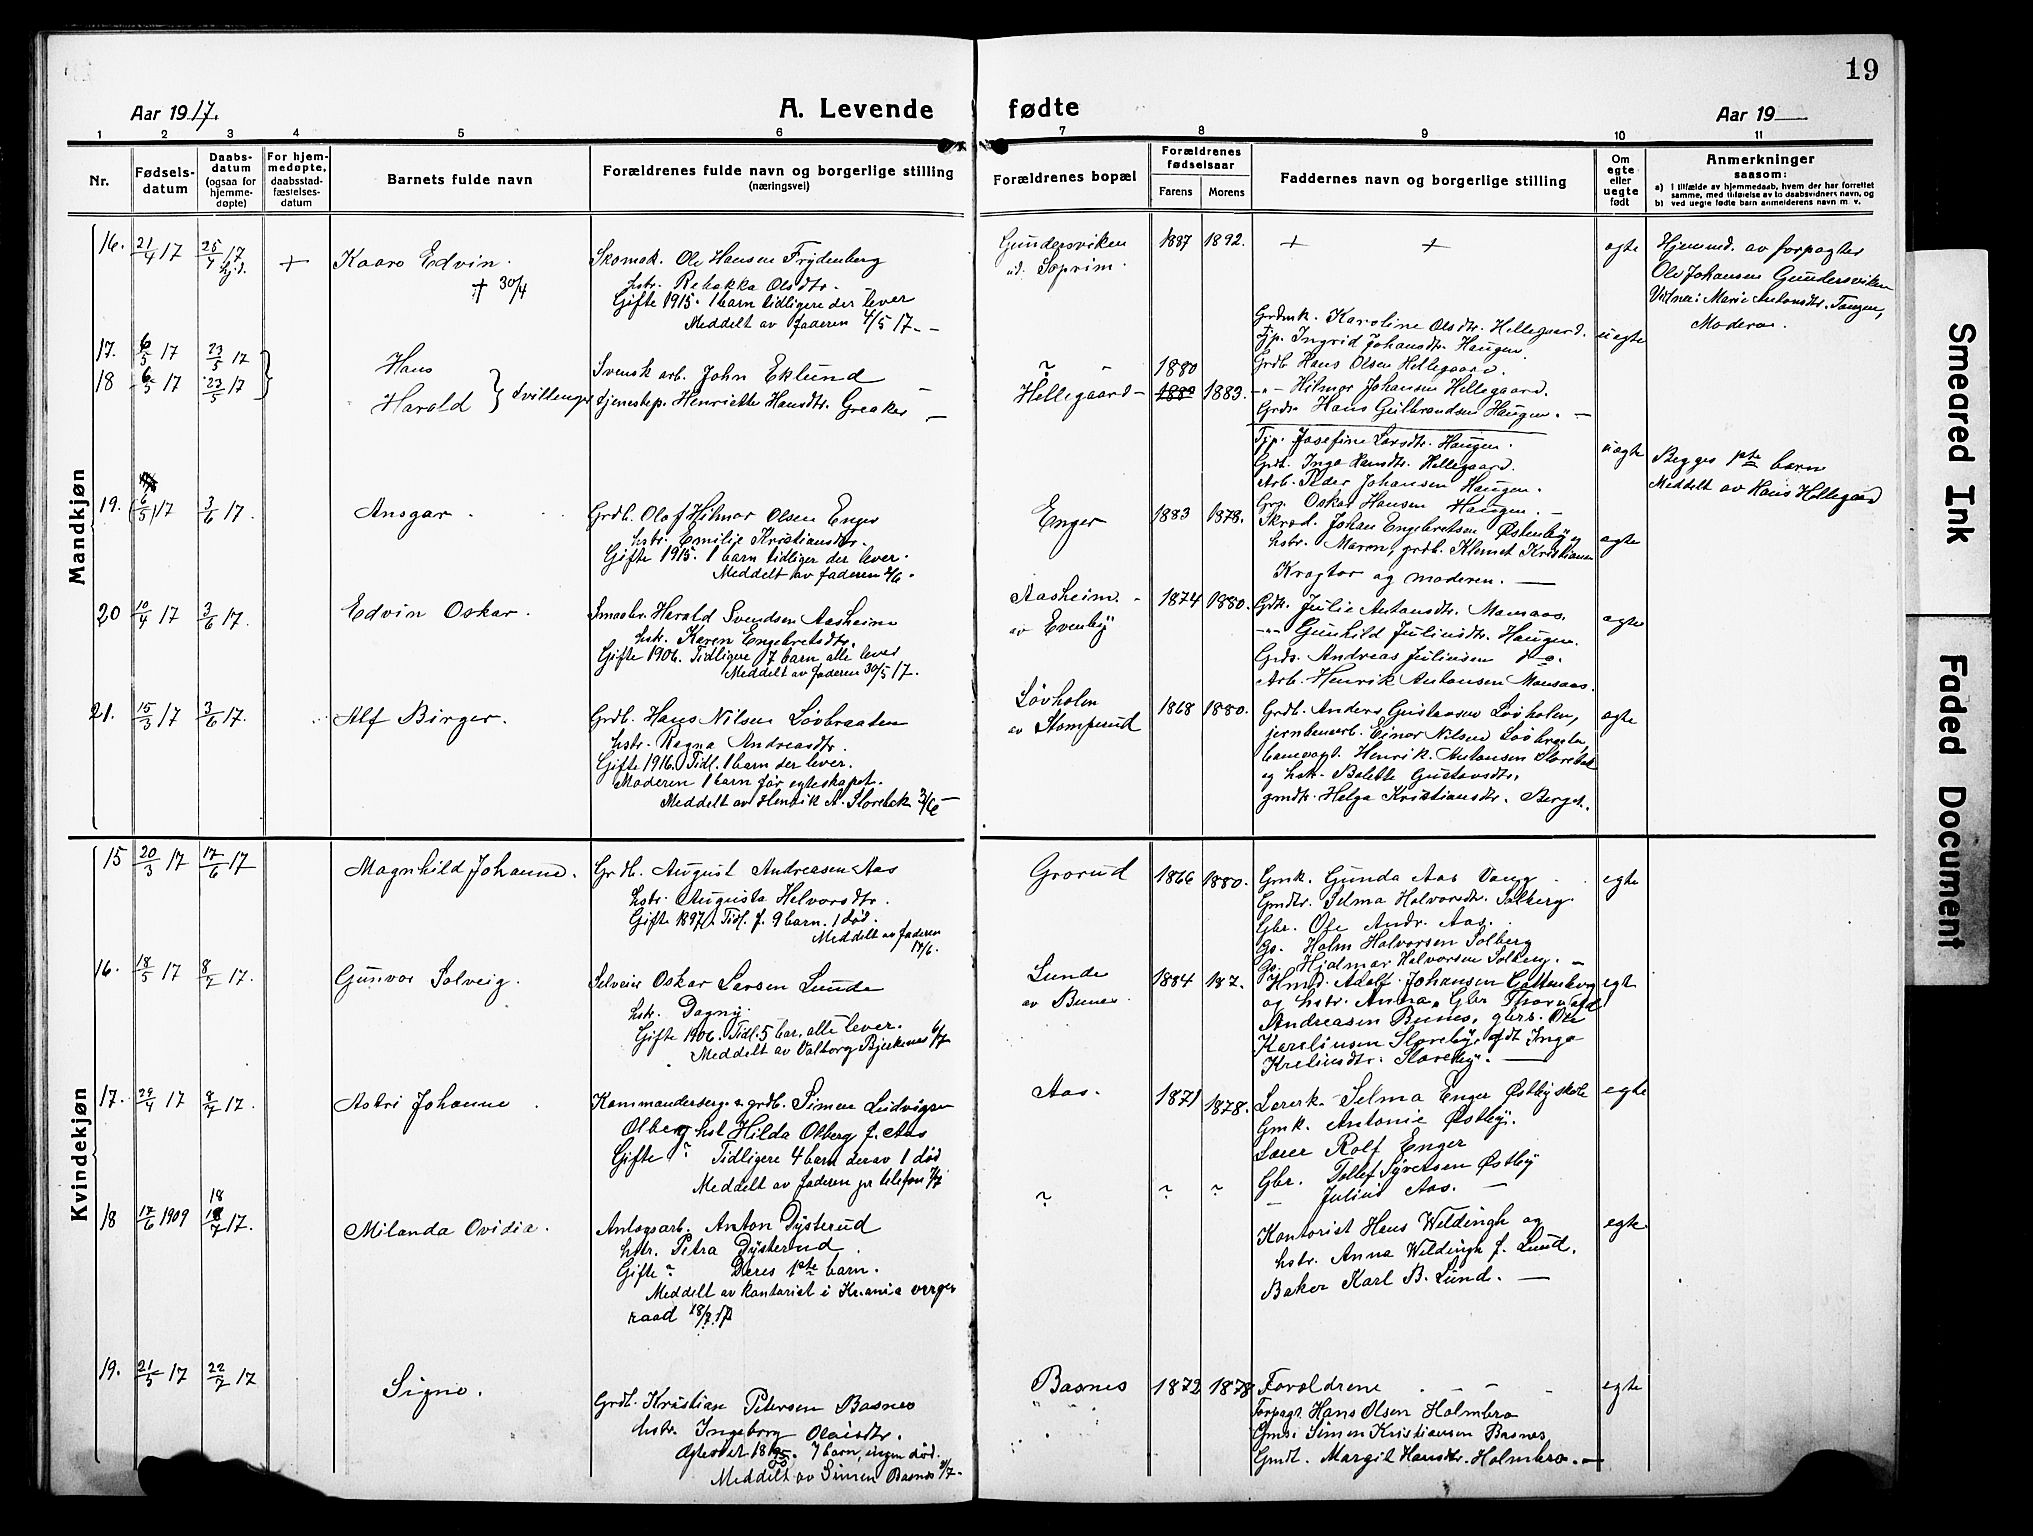 19
Aar 1917.
A. Levende
fødte
Aar 19
1 2 3 4 5 6 7 8 9 10 11
Nr.
Fødsels-
datum
Daabs-
datum
(ogsaa for
hjemme-
døpte)
For hjem-
medøpte,
daabsstad-
fæstelses-
datum
Barnets fulde navn
Forældrenes fulde navn og borgerlige stilling
(næringsvei)
Forældrenes bopæl
Forældrenes
fødselsaar
Farens
Morens
Faddernes navn og borgerlige stilling
Om
egte
eller
uegte
født
Anmerkninger
saasom:
a) i tilfælde av hjemmedaab, hvem der har forrettet
samme, med tilføielse av to daabsvidners navn, og
b) ved uegte fødte barn anmelderens navn m. v.
Mandkjøn
16. 21/4 17 25/4 17 hjd. + Kaare Edvin. + 30/4
Skomak. Ole Hansen Frydenberg
hstr. Rebekka Olsdtr.
Gifte 1915. 1 barn tidligere der lever
Meddelt av faderen 4/5 17.
Gundersviken
u. Soprim.
1887 1892.
+ +
egte
Hjemmed. av forpagter
Ole Johansen Gundersviken
Vidner: Marie Antonsdtr. Tangen,
Moderen.
17. 6/5 17 23/5 17 Hans
18 6/5 17 23/5 17 Harald } tvillinger
Svensk arb. John Eklund
tjenestep. Henriette Hansdtr. Greaker
~
Hellegaard
1880
1882 1883.
Grdmk. Karoline Olsdtr. Hellegaard.
Tjp. Ingrid Johansdtr. Haugen.
Grdb Hans Olsen Hellegaard.
-"- Hilmar Johansen Hellegaard.
Grds. Hans Gulbrandsen Haugen.
uegte
Tjp. Josefine Larsdtr. Haugen.
Grdt. Inga Hansdtr. Hellegaard.
Arb. Peder Johansen Haugen.
Grg. Oskar Hansen Haugen.
uegte
Begges 1ste barn
Meddelt av Hans Hellegaard
19. 6/5 17 3/6 17. Ansgar.
Grdb. Olaf Hilmar Olsen Enger
hstr. Emilie Kristiansdtr.
Gifte 1915. 1 barn tidliger der lever.
Meddelt av faderen 2/6.
Enger
1883 1878.
Skræd. Johan Engebretsen Østenby og
hstr. Maren, grdb. Klemet Kristiansen
Kragtor og moderen.
egte
20 10/4 17 3/6 17. Edvin Oskar.
Smaabr. Harald Svendsen Aasheim
hstr. Karen Engebretsdtr.
Gifte 1906. Tidligere 7 barn, alle lever
Meddelt av faderen 30/5 17.
Aasheim
av Evenby
1874 1880.
Grdk. Julie Antonsdtr. Monsaas.
-"- Gunhild Juliusdtr. Haugen.
Grds. Andreas Juliusen do.
Arb. Henrik Antonsen Monsaas.
egte
21. 15/3 17 3/6 17. Alf Birger.
Grdb. Hans Nilsen Løvbraaten
hstr. Ragna Andreasdtr.
Gifte 1916. Tidl. 1 barn der lever.
Moderen 1 barn før egteskapet.
Meddelt av Henrik A. Storebek 3/6
Løvholm
av Stomperud
1868 1880.
Grdb. Anders Gustavsen Løvholen,
jernbanearb. Einar Nilsen Løvbraaten,
banevogt. Henrik Antonsen Storebek
og hstr. Bolette Gustavsdtr.
gmdt. Helga Kristiansdtr. Berget.
egte
Kvindekjøn
15 20/3 17 17/6 17 Magnhild Johanne.
Grdb. August Andreasen Aas
hstr. Augusta Halvorsdtr.
Gifte 1897. Tidl. f. 9 barn. 1 død.
Meddelt av faderen
17/6.
Grorud
1866 1880.
Gmk. Gunda Aas Vang
Gmdtr. Selma Halvorsdtr. Solberg.
Gbr. Ole Andr. Aas.
Gs. Holm Halvorsen Solberg
Gs. Hjalmar Halvorsen Solberg.
egte
16. 18/5 17 8/7 17. Gunvor Solveig.
Selveier Oskar Larsen Lunde
hstr. Dagny
Gifte 1906. Tidl. 5 bar. alle lever.
Meddelt av Valborg Bjerkenes 6/7
Lunde
av Bunes.
1884 187.
Hmd. Adolf Johansen Gottenborg
og hstr. Anna, Gbr Thorvald
Andreasen Bunes, gbrs. Ole
Karelinsen Storeby, gdt Inga
Krelinsdtr. Storeby.
egte
17. 29/4 17 8/7 17. Astri Johanne
Kommandersergt. grdb. Simen Ludvigsen
Olberg hst Hilda Olberg f. Aas
Gifte ~ Tidligere 4 barn derav 1 død
Meddelt av faderen pr telefon 7/7
Aas.
1871 1878.
Lærerk. Selma Enger Østby skole
Gmk. Antonie Østby.
Lærer Rolf Enger
Gbr. Tollef Syversen Østby
- Julius Aas.
egte
18 17/6 1909 18/7 17. Milanda Ovidia.
Anlægsarb. Anton Dysterud
hstr. Petra Dysterud
Gifte ~ Deres 1ste barn.
Meddelt av kontorist i Kr.ania verge
raad 18/7 17
~ ~ ~
Kontorist Hans Weldingh og
hstr. Anna Weldingh f. Lund.
Baker Karl B. Lund.
egte
19. 21/5 17 22/7 17 Signe.
Grdb. Kristian Petersen Basnes
hstr. Ingeborg Olaisdtr.
Egteviet 1895. 7 barn, ingen død.
Meddelt av Simen Basnes
Basnes
1872 1878
Forældrene
Forpagt. Hans Olsen Holmbro
Gmds. Simen Kristiansen Basnes
Gmdt. Margit Hansdtr. Holmbro.
egte
Smeared Ink
Faded Document